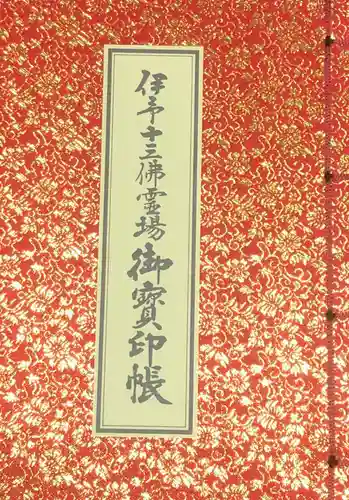 伊予十三佛霊場御寶印帳